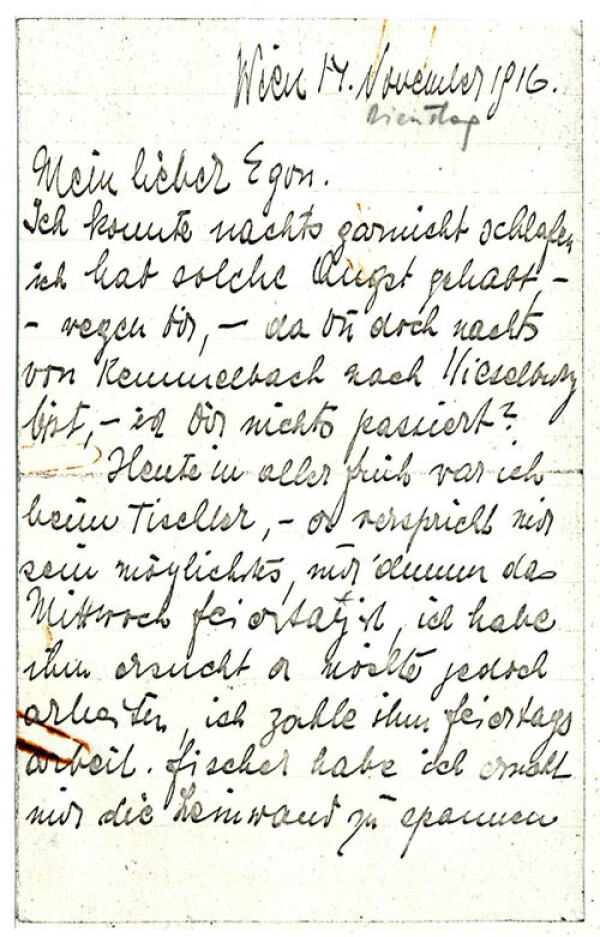 Wien 14. November 1916.
Dienstag
Mein lieber Egon.
Ich konnte nachts garnicht schlafen
ich hab solche Angst gehabt, –
– wegen dir, – da du doch nachts
von Kemmelbach nach Wieselburg
bist, – ist dir nichts passiert?
Heute in aller früh war ich
beim Tischler, – er verspricht mir
sein möglichstes, nur da
Mittwoch feiertag ist, ich habe
ihm ersucht er möchte jedoch
arbeiten, ich zahle ihm feiertags
arbeit. fischer habe ich ersucht
mir die Leinwand zu spannen